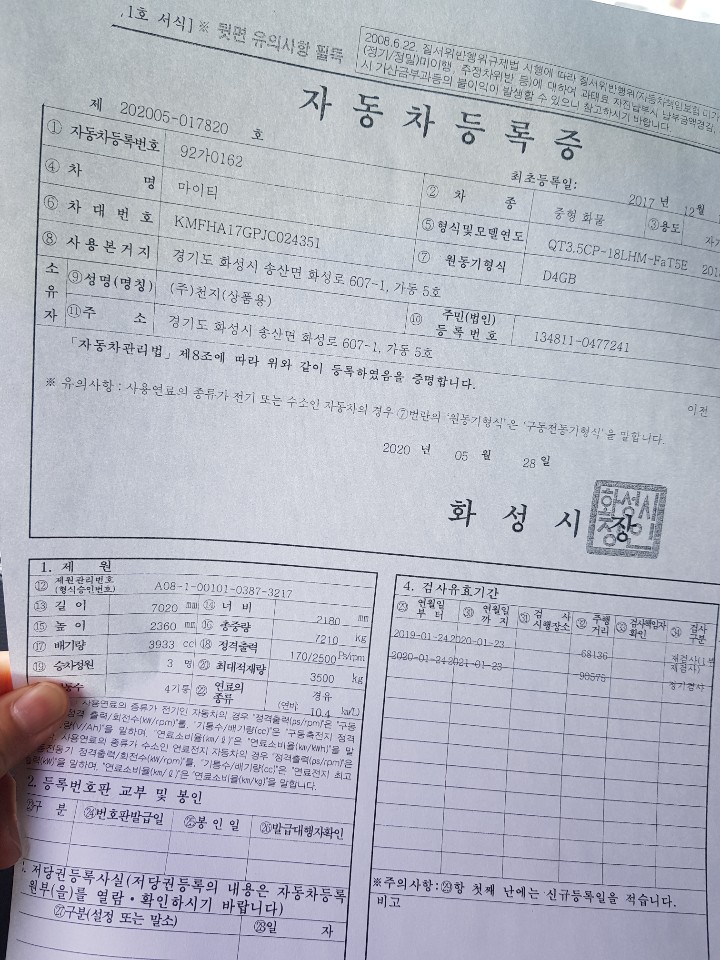 1호 서식] ※ 뒷면 유의사항 필독
2008.6.22. 질서위반행위규제법 시행에 따라 질서위반행위(자동차책임보험 미가
(정기/정밀)미이행, 주정차위반 등)에 대하여 과태료 자진납부시 납부금액경감,
시 가산금부과등의 불이익이 발생할 수 있으니 참고하시기 바랍니다.
자동차등록증
제 202005-017820 호
최초등록일: 2017 년 12월
① 자동차등록번호 92가0162 ② 차 종 중형 화물 ③용도 자가
④ 차 명 마이티 ⑤형식및모델연도 QT3.5CP-18LHM-FaT5E 201
⑥ 차 대 번 호 KMFHA17GPJC024351 ⑦ 원동기형식 D4GB
⑧ 사용본거지 경기도 화성시 송산면 화성로 607-1, 가동 5호
소유자 ⑨성명(명칭) (주)천지(상품용) ⑩ 주민(법인)등록번호 134811-0477241
⑪주 소 경기도 화성시 송산면 화성로 607-1, 가동 5호
「자동차관리법」 제8조에 따라 위와 같이 등록하였음을 증명합니다.
이전
※ 유의사항 : 사용연료의 종류가 전기 또는 수소인 자동차의 경우 ⑦번란의 '원동기형식'은 '구동전동기형식'을 말합니다.
2020 년 05 월 28 일
화 성 시 장
화성시
1. 제 원
⑫ 제원관리번호(형식승인번호) A08-1-00101-0387-3217
⑬ 길 이 7020 mm ⑭ 너 비 2180 mm
⑮ 높 이 2360 mm ⑯ 총중량 7210 kg
⑰ 배기량 3933 cc ⑱ 정격출력 170/2500 Ps/rpm
⑲ 승차정원 3 명 ⑳ 최대적재량 3500 kg
통수 4기통 ㉒ 연료의 종류 경유
(연비 10.4 km/L)
사용연료의 종류가 전기인 자동차의 경우 '정격출력(ps/rpm)'은 '구동
정격 출력/회전수(kW/rpm)'를, '기통수/배기량(cc)'은 '구동축전지 정격
량(V/Ah)'을 말하며, '연료소비율(km/ℓ)'은 '연료소비율(km/kWh)'을 말
사용연료의 종류가 수소인 연료전지 자동차의 경우 '정격출력(ps/rpm)'은
동전동기 정격출력/회전수(kW/rpm)'를, '기통수/배기량(cc)'은 '연료전지 최고
(kW)'을 말하며, '연료소비율(km/ℓ)'은 '연료소비율(km/kg)'을 말합니다.
2. 등록번호판 교부 및 봉인
㉓구 분 ㉔번호판발급일 ㉕봉 인 일 ㉖발급대행자확인
저당권등록사실(저당권등록의 내용은 자동차등록
원부(을)를 열람·확인하시기 바랍니다)
㉗구분(설정 또는 말소) ㉘일 자
4. 검사유효기간
㉙ 연월일부터 ㉚ 연월일까지 ㉛ 검 사 시행장소 ㉜ 주행거리 ㉝ 검사책임자확인 ㉞ 검사구분
2019-01-24 2020-01-23 68136 재검사)
2020-01-24 2021-01-23 98575 정기검사
※주의사항:㉙항 첫째 난에는 신규등록일을 적습니다.
비고